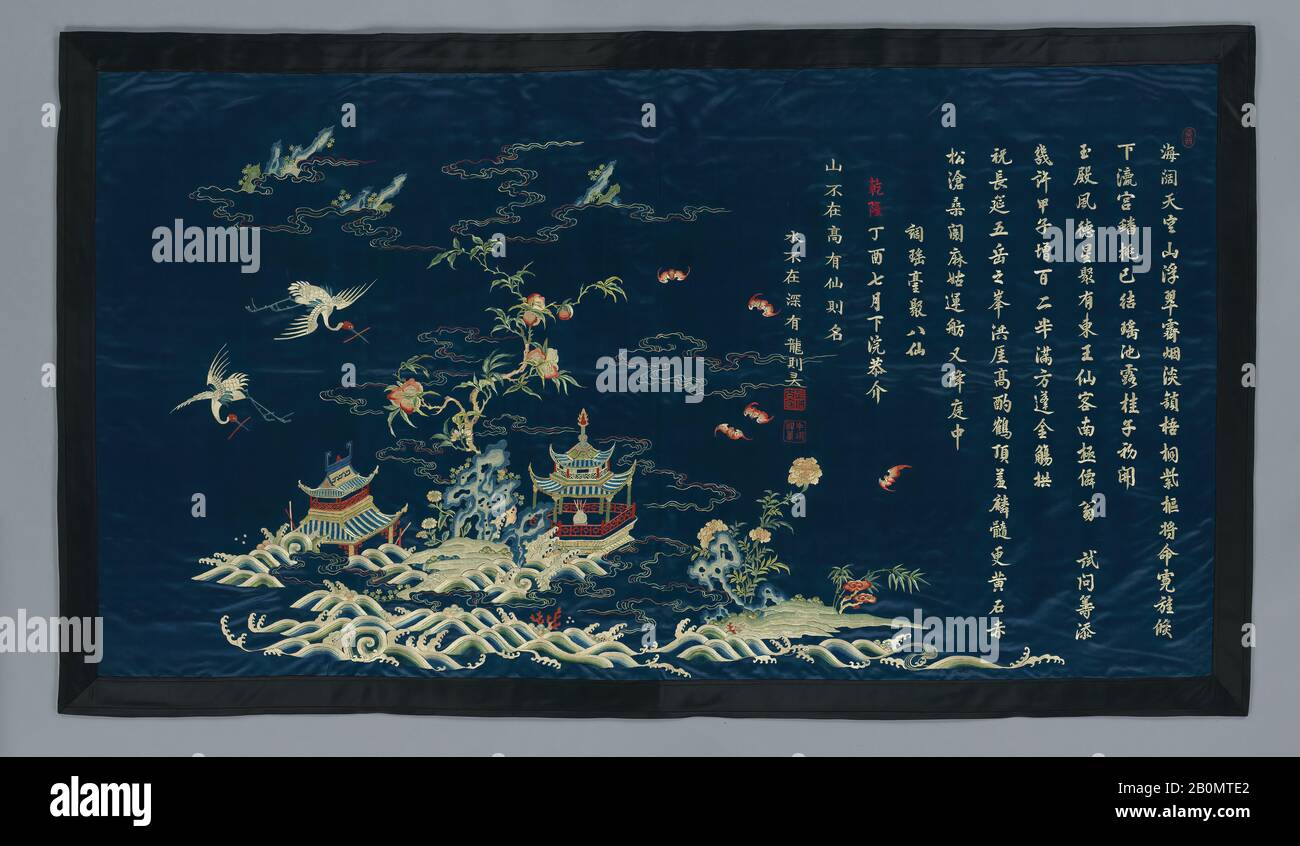 海阔天空山浮翠霽烟淡鎖梧桐紫樞將命霓旌候
下瀛宫蟠桃已结瑤池露桂子初開
玉殿風德星聚有東王仙客南極僊翁 試問籌添
幾許甲子增百二半滿方蓬金觴拱
祝長莚五岳之峯洪厓高酌鶴頂羞麟髓更黄石赤
松滄桑閱麻姑運舫又降庭中
調瑤臺聚八仙
乾隆丁酉七月下浣恭介
山不在高有仙則名
水不在深有龍則灵
alamy
Image ID: 2B0MTE2
www.alamy.com